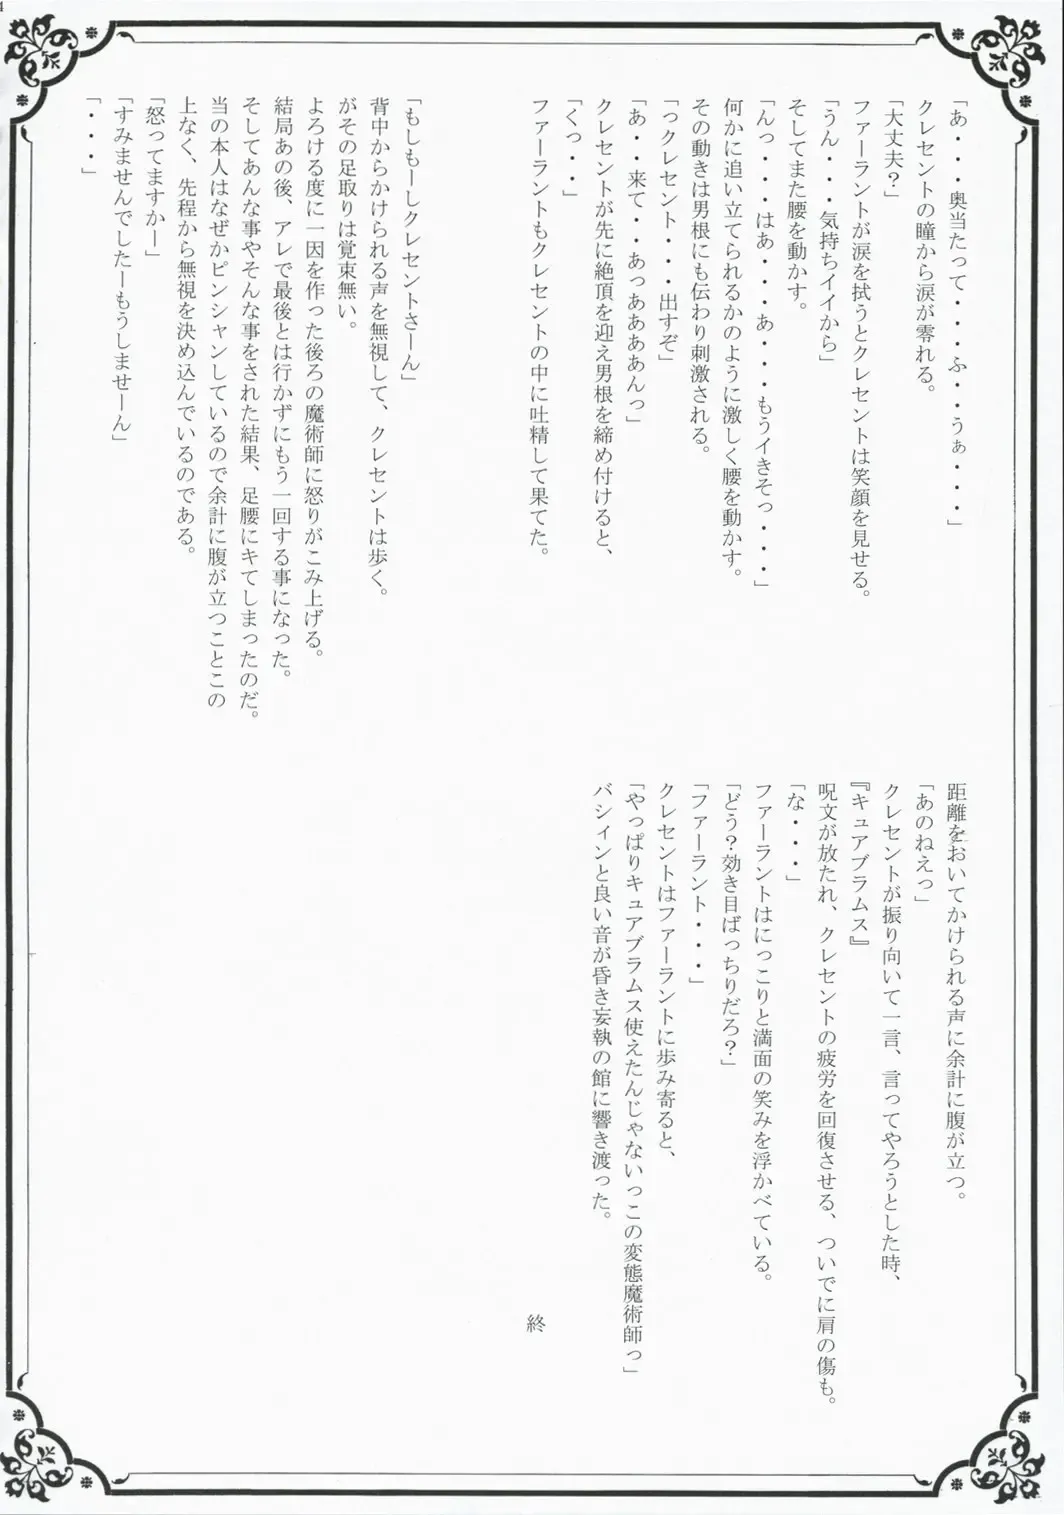 「あ・・・奥当たって・・・ふ・・うぁ・・・」
クレセントの瞳から涙が零れる。
「大丈夫？」
ファーラントが涙を拭うとクレセントは笑顔を見せる。
「うん・・・気持ちイイから」
そしてまた腰を動かす。
「んっ・・・はあ・・・あ・・・もうイきそっ・・・」
何かに追い立てられるかのように激しく腰を動かす。
その動きは男根にも伝わり刺激される。
「っクレセント・・・出すぞ」
「あ・・来て・・あっああああんっ」
クレセントが先に絶頂を迎え男根を締め付けると、
「くっ・・」
ファーラントもクレセントの中に吐精して果てた。
「もしもーしクレセントさーん」
背中からかけられる声を無視して、クレセントは歩く。
がその足取りは覚束無い。
よろける度に一因を作った後ろの魔術師に怒りがこみ上げる。
結局あの後、アレで最後とは行かずにもう一回する事になった。
そしてあんな事やそんな事をされた結果、足腰にキてしまったのだ。
当の本人はなぜかピンシャンしているので余計に腹が立つことこの
上なく、先程から無視を決め込んでいるのである。
「怒ってますかー」
「すみませんでしたーもうしませーん」
「・・・」
距離をおいてかけられる声に余計に腹が立つ。
「あのねえっ」
クレセントが振り向いて一言、言ってやろうとした時、
『キュアブラムス』
呪文が放たれ、クレセントの疲労を回復させる、ついでに肩の傷も。
「な・・・」
ファーラントはにっこりと満面の笑みを浮かべている。
「どう？効き目ばっちりだろ？」
「ファーラント・・・」
クレセントはファーラントに歩み寄ると、
「やっぱりキュアブラムス使えたんじゃないっこの変態魔術師っ」
バシィンと良い音が昏き妄執の館に響き渡った。
終